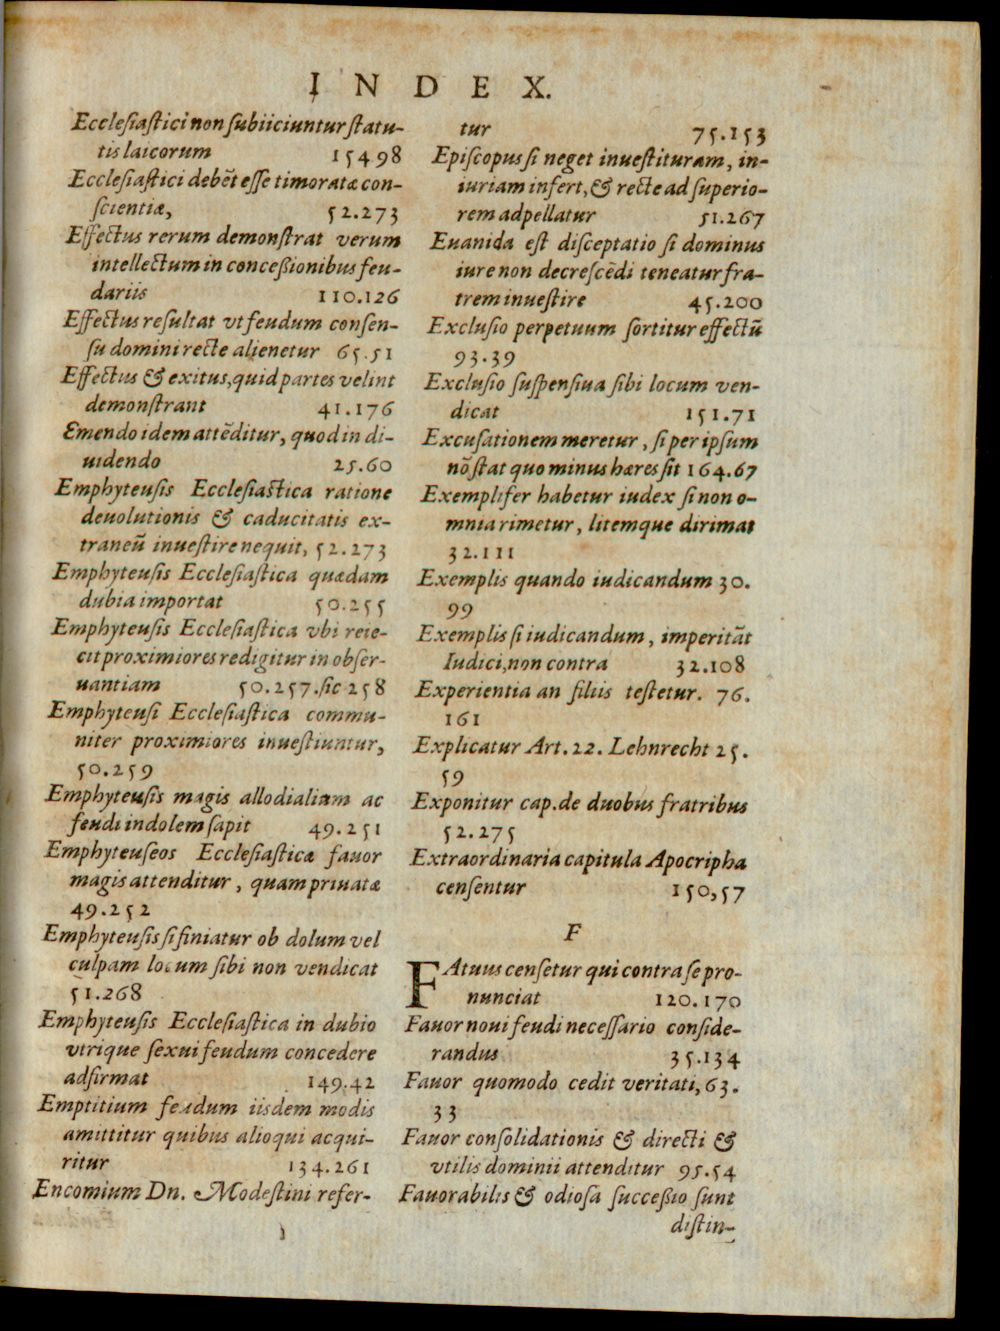 INDEX.
Ecclesiastici non subiiciuntur statu-
tis laicorum 154 98
Ecclesiastici debēt esse timoratæ con-
scientiæ, 52.273
Effectus rerum demonstrat verum
intellectum in concessionibus feu-
dariis 110.126
Effectus resultat vt feudum consen-
su domini recte alienetur 65.51
Effectus & exitus, quid partes velint
demonstrant 41.176
Emendo idem attēditur, quod in di-
uidendo 25.60
Emphyteusis Ecclesiastica ratione
deuolutionis & caducitatis ex-
traneū inuestire nequit, 52.273
Emphyteusis Ecclesiastica quædam
dubia importat 50.255
Emphyteusis Ecclesiastica vbi reie-
cit proximiores redigitur in obser-
uantiam 50.257.sic 258
Emphyteusi Ecclesiastica commu-
niter proximiores inuestiuntur,
50.259
Emphyteusis magis allodialium ac
feudi indolem sapit 49.251
Emphyteuseos Ecclesiasticæ fauor
magis attenditur, quam priuatæ
49.252
Emphyteusis si finiatur ob dolum vel
culpam locum sibi non vendicat
51.268
Emphyteusis Ecclesiastica in dubio
vtrique sexui feudum concedere
adfirmat 149.42
Emptitium feudum iisdem modis
amittitur quibus alioqui acqui-
ritur 134.261
Encomium Dn. Modestini refer-
tur 75.153
Episcopus si neget inuestituram, in-
iuriam infert, & recte ad superio-
rem adpellatur 51.267
Euanida est disceptatio si dominus
iure non decrescēdi teneatur fra-
trem inuestire 45.200
Exclusio perpetuum sortitur effectū
93.39
Exclusio suspensiua sibi locum ven-
dicat 151.71
Excusationem meretur, si per ipsum
nō stat quo minus hæres sit 164.67
Exemplifer habetur iudex si non o-
mnia rimetur, litemque dirimat
32.111
Exemplis quando iudicandum 30.
99
Exemplis si iudicandum, imperitāt
Iudici, non contra 32.108
Experientia an filiis testetur. 76.
161
Explicatur Art.22. Lehnrecht 25.
59
Exponitur cap. de duobus fratribus
52.275
Extraordinaria capitula Apocripha
censentur 150,57
F
FAtuus censetur qui contra se pro-
nunciat 120.170
Fauor noui feudi necessario conside-
randus 35.134
Fauor quomodo cedit veritati, 63.
33
Fauor consolidationis & directi &
vtilis dominii attenditur 95.54
Fauorabilis & odiosa successio sunt
distin-